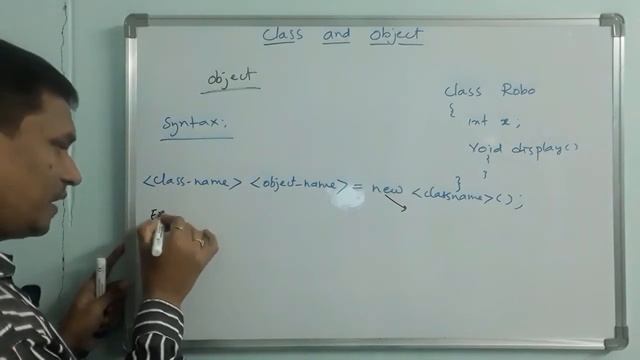 Class and object
object
Syntax:
<class-name> <object-name> = new <classname>();
Ex
class Robo
{
int x;
Void display()
{
}
}